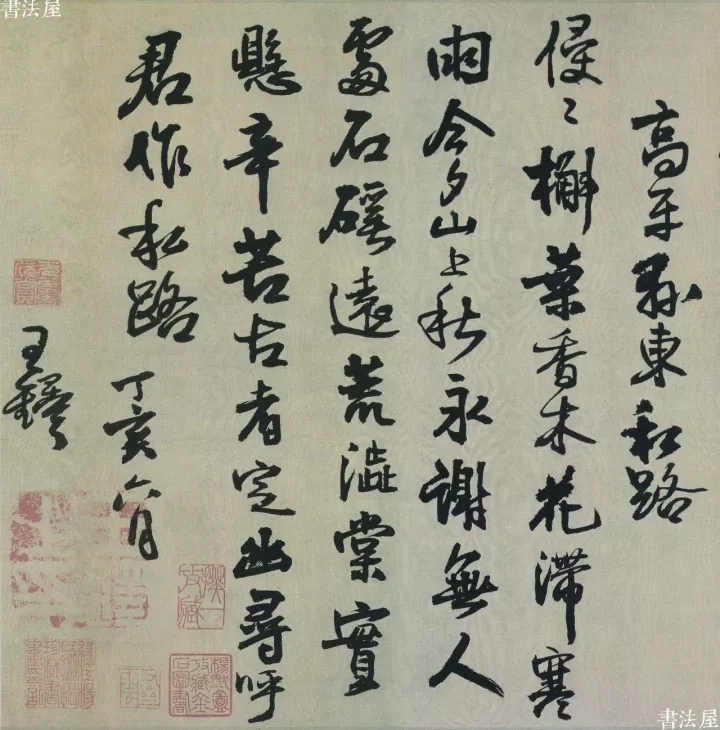 書法屋
高平縣東私路
侵〻槲葉香木花滯寒
雨今夕山上秋永謝無人
處石磎遠荒澁棠實
懸辛苦古者定幽尋呼
君作私路
丁亥六月
王鐸
書法屋